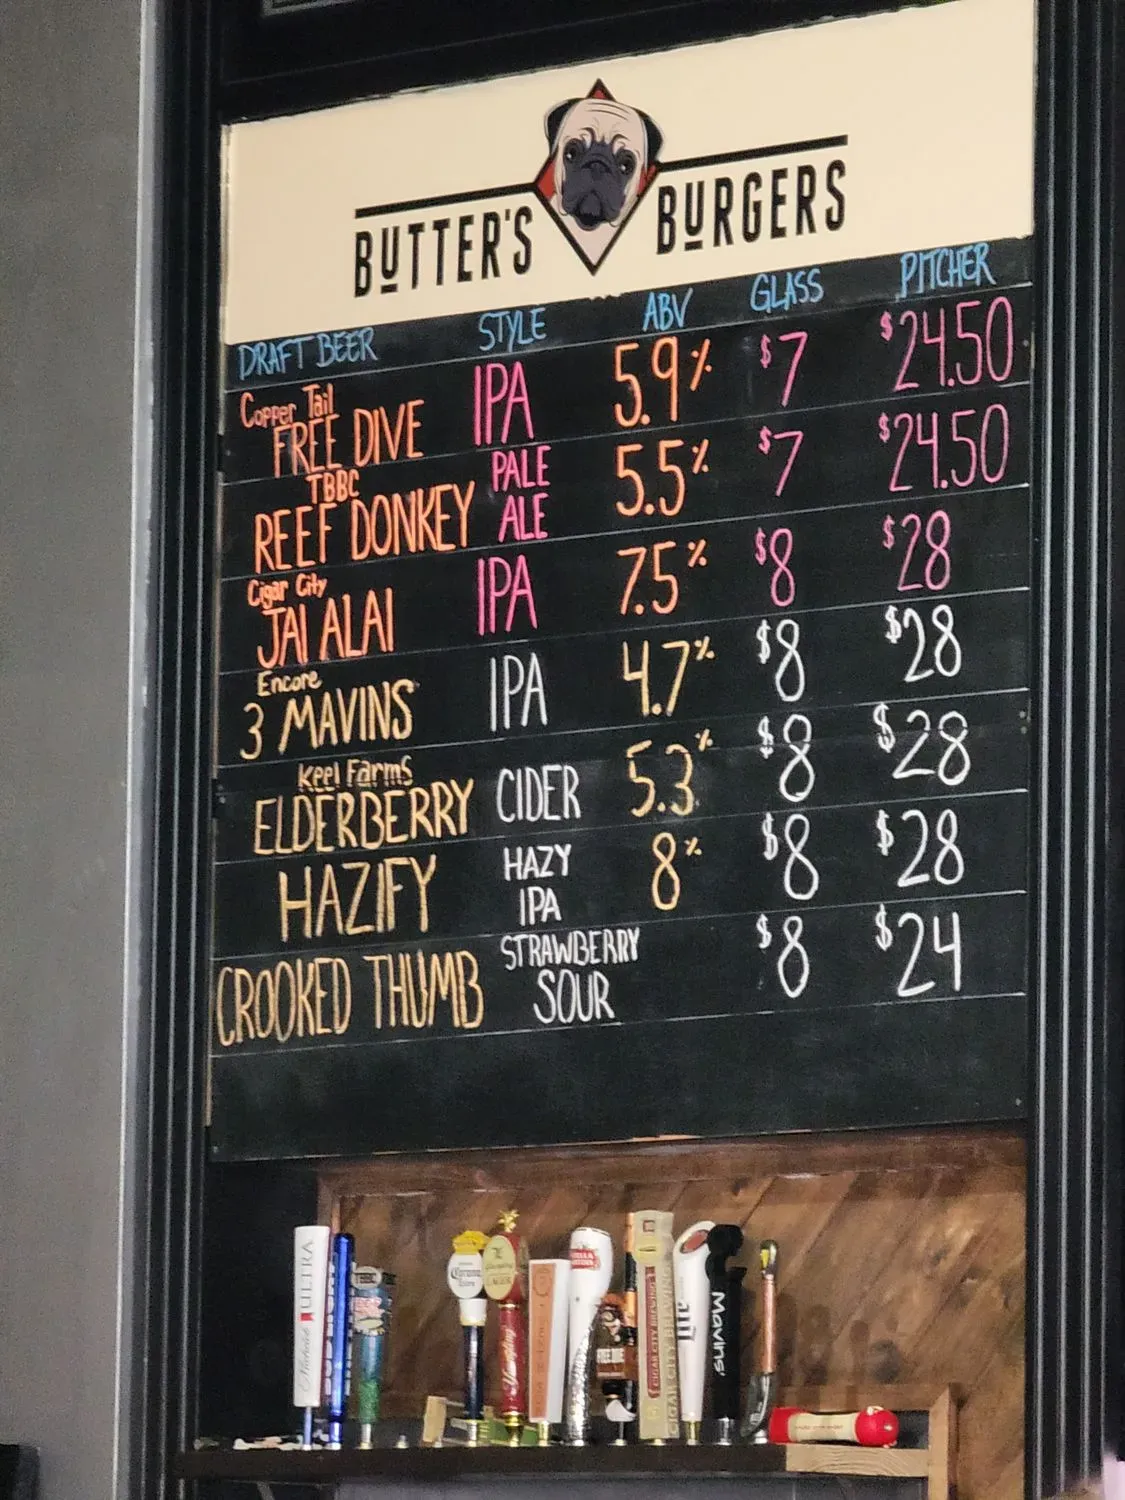 BUTTER'S BURGERS
DRAFT BEER STYLE ABV GLASS PITCHER
Copper Tail
FREE DIVE IPA 5.9% $7 $24.50
TBBC
REEF DONKEY PALE ALE 5.5% $7 $24.50
Cigar City
JAI ALAI IPA 7.5% $8 $28
Encore
3 MAVINS IPA 4.7% $8 $28
Keel Farms
ELDERBERRY CIDER 5.3% $8 $28
HAZIFY HAZY IPA 8% $8 $28
CROOKED THUMB STRAWBERRY SOUR $8 $24
Michelob ULTRA
TBBC
Corona
Yuengling
STELLA
FREE DIVE
CIGAR CITY BREWING
CIGAR CITY BREWING
Lite
Mavins'